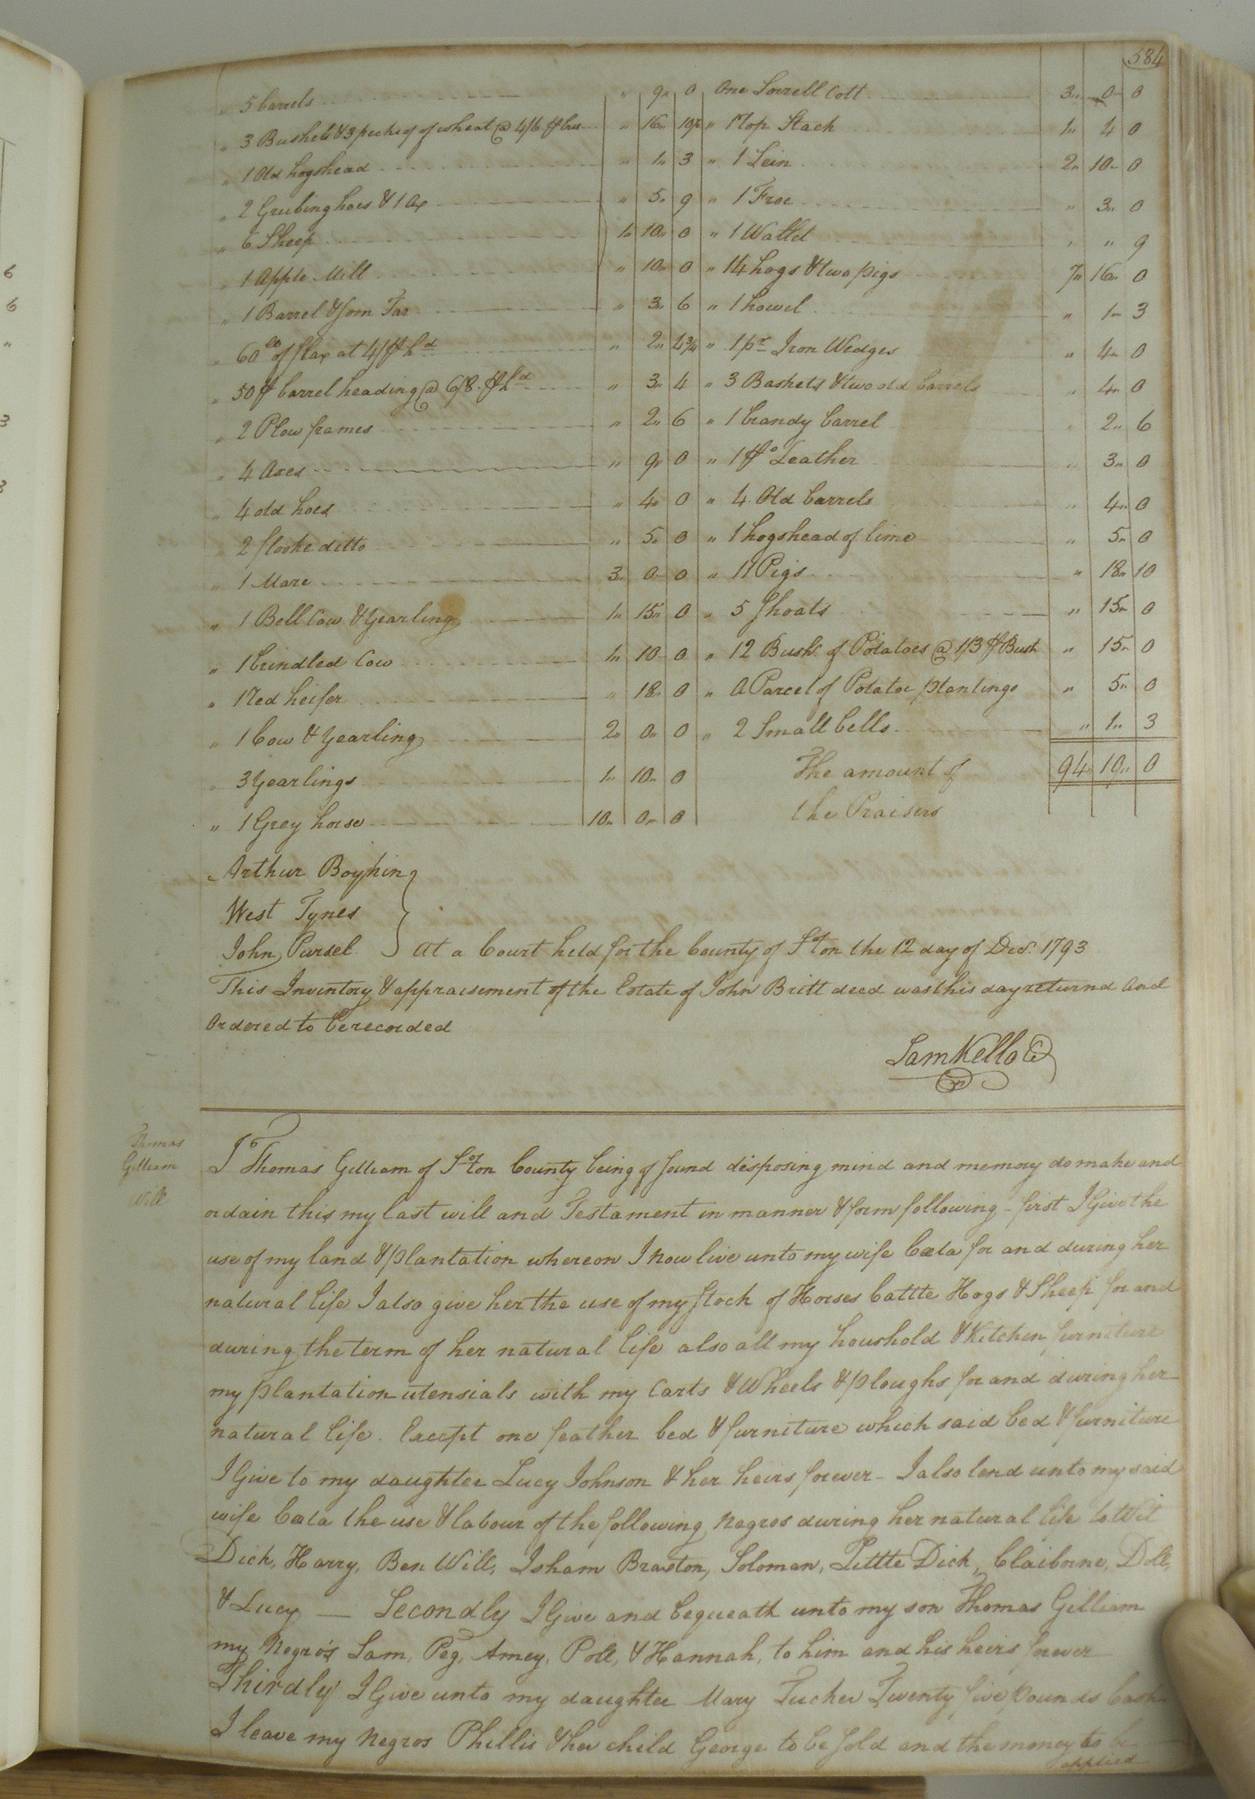 584
" 5 barrels " 9 0 One Sorrell Colt 3 0 0
" 3 Bushels & 3 pecks of wheat @ 4/6 " 16 10½ " 1 Top Stack 1 4 0
" 1 Old hogshead " 1 3 " 1 2 10 0
" 2 Grubing hoes & 1 ax " 5 9 " 1 Froe " 3 0
" 6 Sheep 1 10 0 " 1 Wallet " " 9
" 1 Apple Mill " 10 0 " 14 hogs & two pigs 7 16 0
" 1 Barrel & som Tar " 3 6 " 1 howel " 1 3
" 60 lb of flax at 4/ " 2 4¾ " 1 pr Iron Wedges " 4 0
" 50 barrel heading @ 6/8 " 3 4 " 3 Baskets & two old barrels " 4 0
" 2 Plow frames " 2 6 " 1 brandy barrel " 2 6
" 4 axes " 9 0 " 1 Leather " 3 0
" 4 old hoes " 4 0 " 4 Old barrels " 4 0
" 2 ditto " 5 0 " 1 hogshead of lime " 5 0
" 1 Mare 3 0 0 " 11 Pigs " 18 10
" 1 Bell Cow & Yearling 1 15 0 " 5 Shoats " 15 0
" 1 brindled Cow 1 10 0 " 12 Bush of Potatoes @ 1/3 Bush " 15 0
" 1 Red heifer " 18 0 " A Parcel of Potatoe plantings " 5 0
" 1 Cow & Yearling 2 0 0 " 2 Small bells " 1 3
" 3 Yearlings 1 10 0 The amount of 94 10 0
" 1 Grey horse 10 0 0 the Praisers
Arthur Boykin
West Tynes
John Pursel } At a Court held for the County of Soton the 12 day of Decr. 1793
This Inventory & appraisement of the Estate of John Britt deed was this day returnd and
Ordored to be recorded
Sam Kello C
Thomas
Gilliam
Will
I Thomas Gilliam of Soton County being of sound disposing mind and memory do make and
ordain this my last will and Testament in manner & form following - first I Give the
use of my land & plantation whereon I now live unto my wife for and during her
natural life I also give her the use of my stock of Horses Cattle Hogs & Sheep for and
during the term of her natural life also all my houshold & Kitchen furniture
my plantation utensials with my Carts & Wheels & ploughs for and during her
natural life. Except one feather bed & furniture which said bed & furniture
I Give to my daughter Lucy Johnson & her heirs forever - I also lend unto my said
wife the use & labour of the following Negros during her natural life to Wit
Dick, Harry, Ben Will, Isham Braxton, Soloman, Little Dick, Claiborne, Doll,
& Lucy — Secondly I Give and bequeath unto my son Thomas Gilliam
my Negro's Sam, Peg, Amey, Poll, & Hannah, to him and his heirs forever
Thirdly I Give unto my daughter Mary Tucker Twenty five pounds Cash
I leave my Negros Phillis & her child George to be sold and the money to be
applied